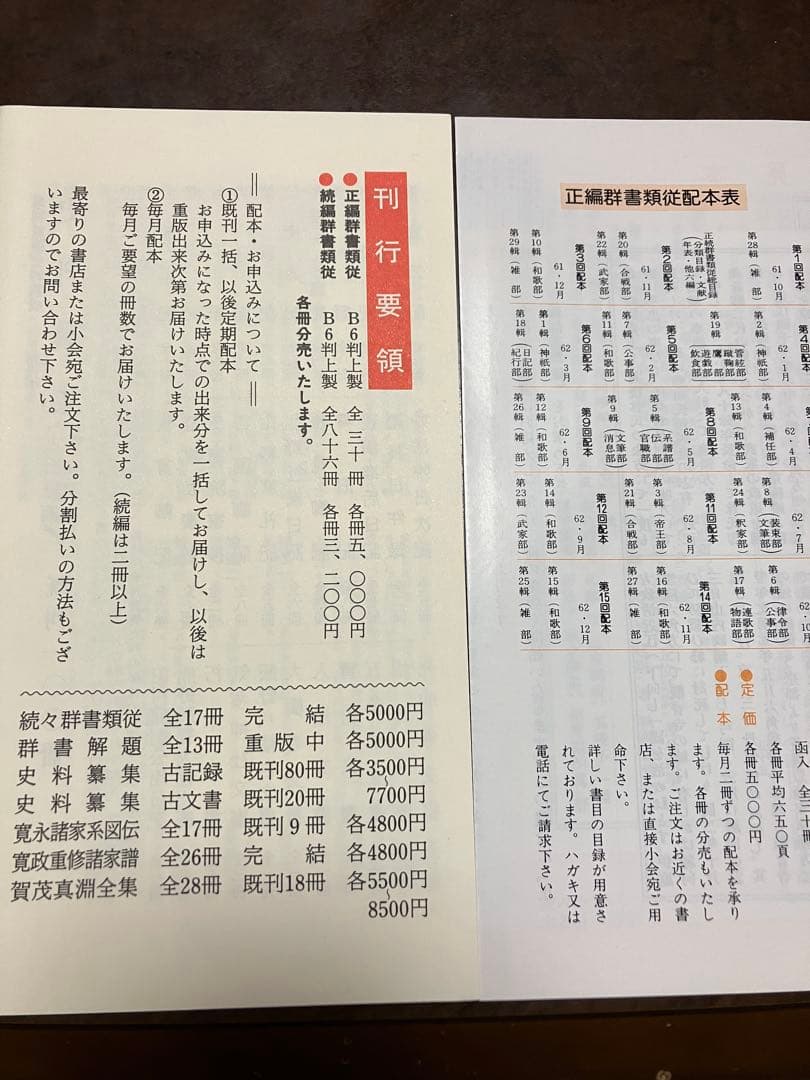 刊行要領
●正編群書類従 B6判上製 全三十冊 各冊五、〇〇〇円
●続編群書類従 B6判上製 全八十六冊 各冊三、二〇〇円
各冊分売いたします。
＝配本・お申込みについて＝
①既刊一括、以後定期配本
お申込みになった時点での出来分を一括してお届けし、以後は
重版出来次第お届けいたします。
②毎月配本
毎月ご要望の冊数でお届けいたします。(続編は二冊以上)
最寄りの書店または小会宛ご注文下さい。分割払いの方法もござ
いますのでお問い合わせ下さい。
続々群書類従 全17冊 完結 各5000円
群書解題 全13冊 重版中 各5000円
史料纂集 古記録 既刊80冊 各3500〜
史料纂集 古文書 既刊20冊 7700円
寛永諸家系図伝 全17冊 既刊9冊 各4800円
寛政重修諸家譜 全26冊 完結 各4800円
賀茂真淵全集 全28冊 既刊18冊 各5500〜
8500円
正編群書類従配本表
第1回配本
61・10月
第28輯(雑部)
正続群書類従総目録
(分類目録・文献年表・他六編)
第2回配本
61・11月
第20輯(合戦部)
第22輯(武家部)
第3回配本
61・12月
第10輯(和歌部)
第29輯(雑部)
第4回配本
62・1月
第2輯(神祇部)
第19輯(管絃部 蹴鞠部 鷹部 遊戯部 飲食部)
第5回配本
62・2月
第7輯(公事部)
第11輯(和歌部)
第6回配本
62・3月
第1輯(神祇部)
第18輯(日記部 紀行部)
62・4月
第4輯(補任部)
第13輯(和歌部)
第8回配本
62・5月
第5輯(系譜部 伝部 官職部)
第9輯(文筆部 消息部)
第9回配本
62・6月
第12輯(和歌部)
第26輯(雑部)
62・7月
第8輯(装束部 文筆部)
第24輯(釈家部)
第11回配本
62・8月
第3輯(帝王部)
第21輯(合戦部)
第12回配本
62・9月
第14輯(和歌部)
第23輯(武家部)
62・10
第6輯(律令部 公事部)
第17輯(連歌部 物語部)
第14回配本
62・11月
第16輯(和歌部)
第27輯(雑部)
第15回配本
62・12月
第15輯(和歌部)
第25輯(雑部)
函入 全三十冊
各冊平均六五〇頁
●定価 各冊五〇〇〇円
●配本 毎月二冊ずつの配本を承り
ます。各冊の分売もいたし
ます。ご注文はお近くの書
店、または直接小会宛ご用
命下さい。
詳しい書目の目録が用意さ
れております。ハガキ又は
電話にてご請求下さい。